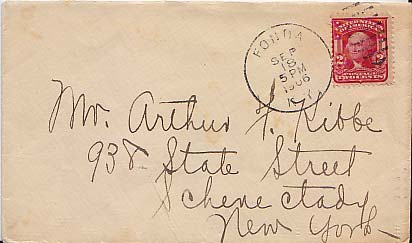 FONDA
SEP
5 PM
1906
UNITED STATES
OF AMERICA
2 2
POSTAGE
TWO CENTS
Mr. Arthur F. Kibbe
938 State Street
Schenectady
New York